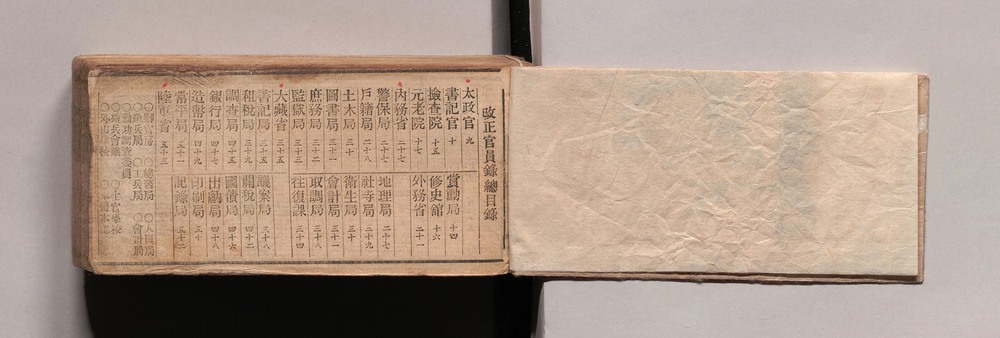 改正官員錄總目錄
太政官 九
書記官 十 賞勳局 十四
檢查院 十五 修史館 十六
元老院 十七 外務省 二十一
內務省 二十七
警保局 二十七 地理局 二十七
戶籍局 二十八 社寺局 二十九
土木局 三十 衛生局 三十
圖書局 三十一 會計局 三十一
庶務局 三十二 取調局
監獄局 三十三 往復課 三十四
大藏省 三十五
書記局 三十五 議案局 三十八
租稅局 關稅局 四十二
調查局 四十五 國債局 四十六
銀行局 四十七 出納局 四十八
造幣局 四十九 印刷局 五十
常平局 五十二 記錄局 五十二
陸軍省 五十三